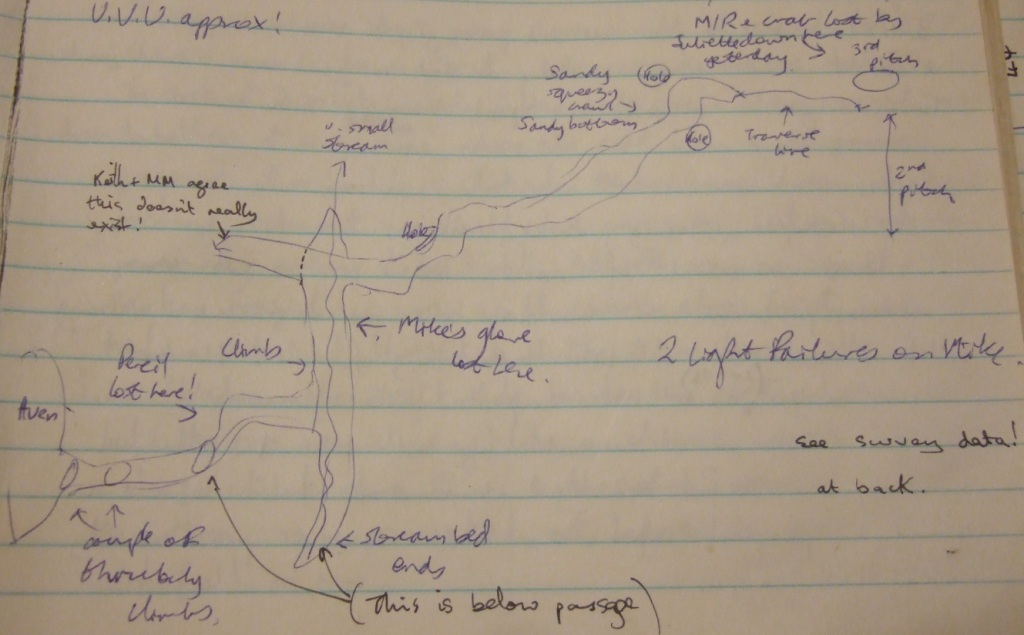 V.V.V. approx!
M/R & crab lost by
Juliette down here
yesterday
3rd
pitch
Sandy
squeezy
crawl
Sandy bottom
Hole
Hole
Traverse
line
2nd
pitch
v. small
stream
Keith + MM agree
this doesn't really
exist!
Hole
Mike's glove
lost here.
Climbs
Pencil
lost here!
2 Light Failures on Mike.
Aven
see survey data!
at back.
couple of
thrutchy
climbs.
streambed
ends
(This is below passage)